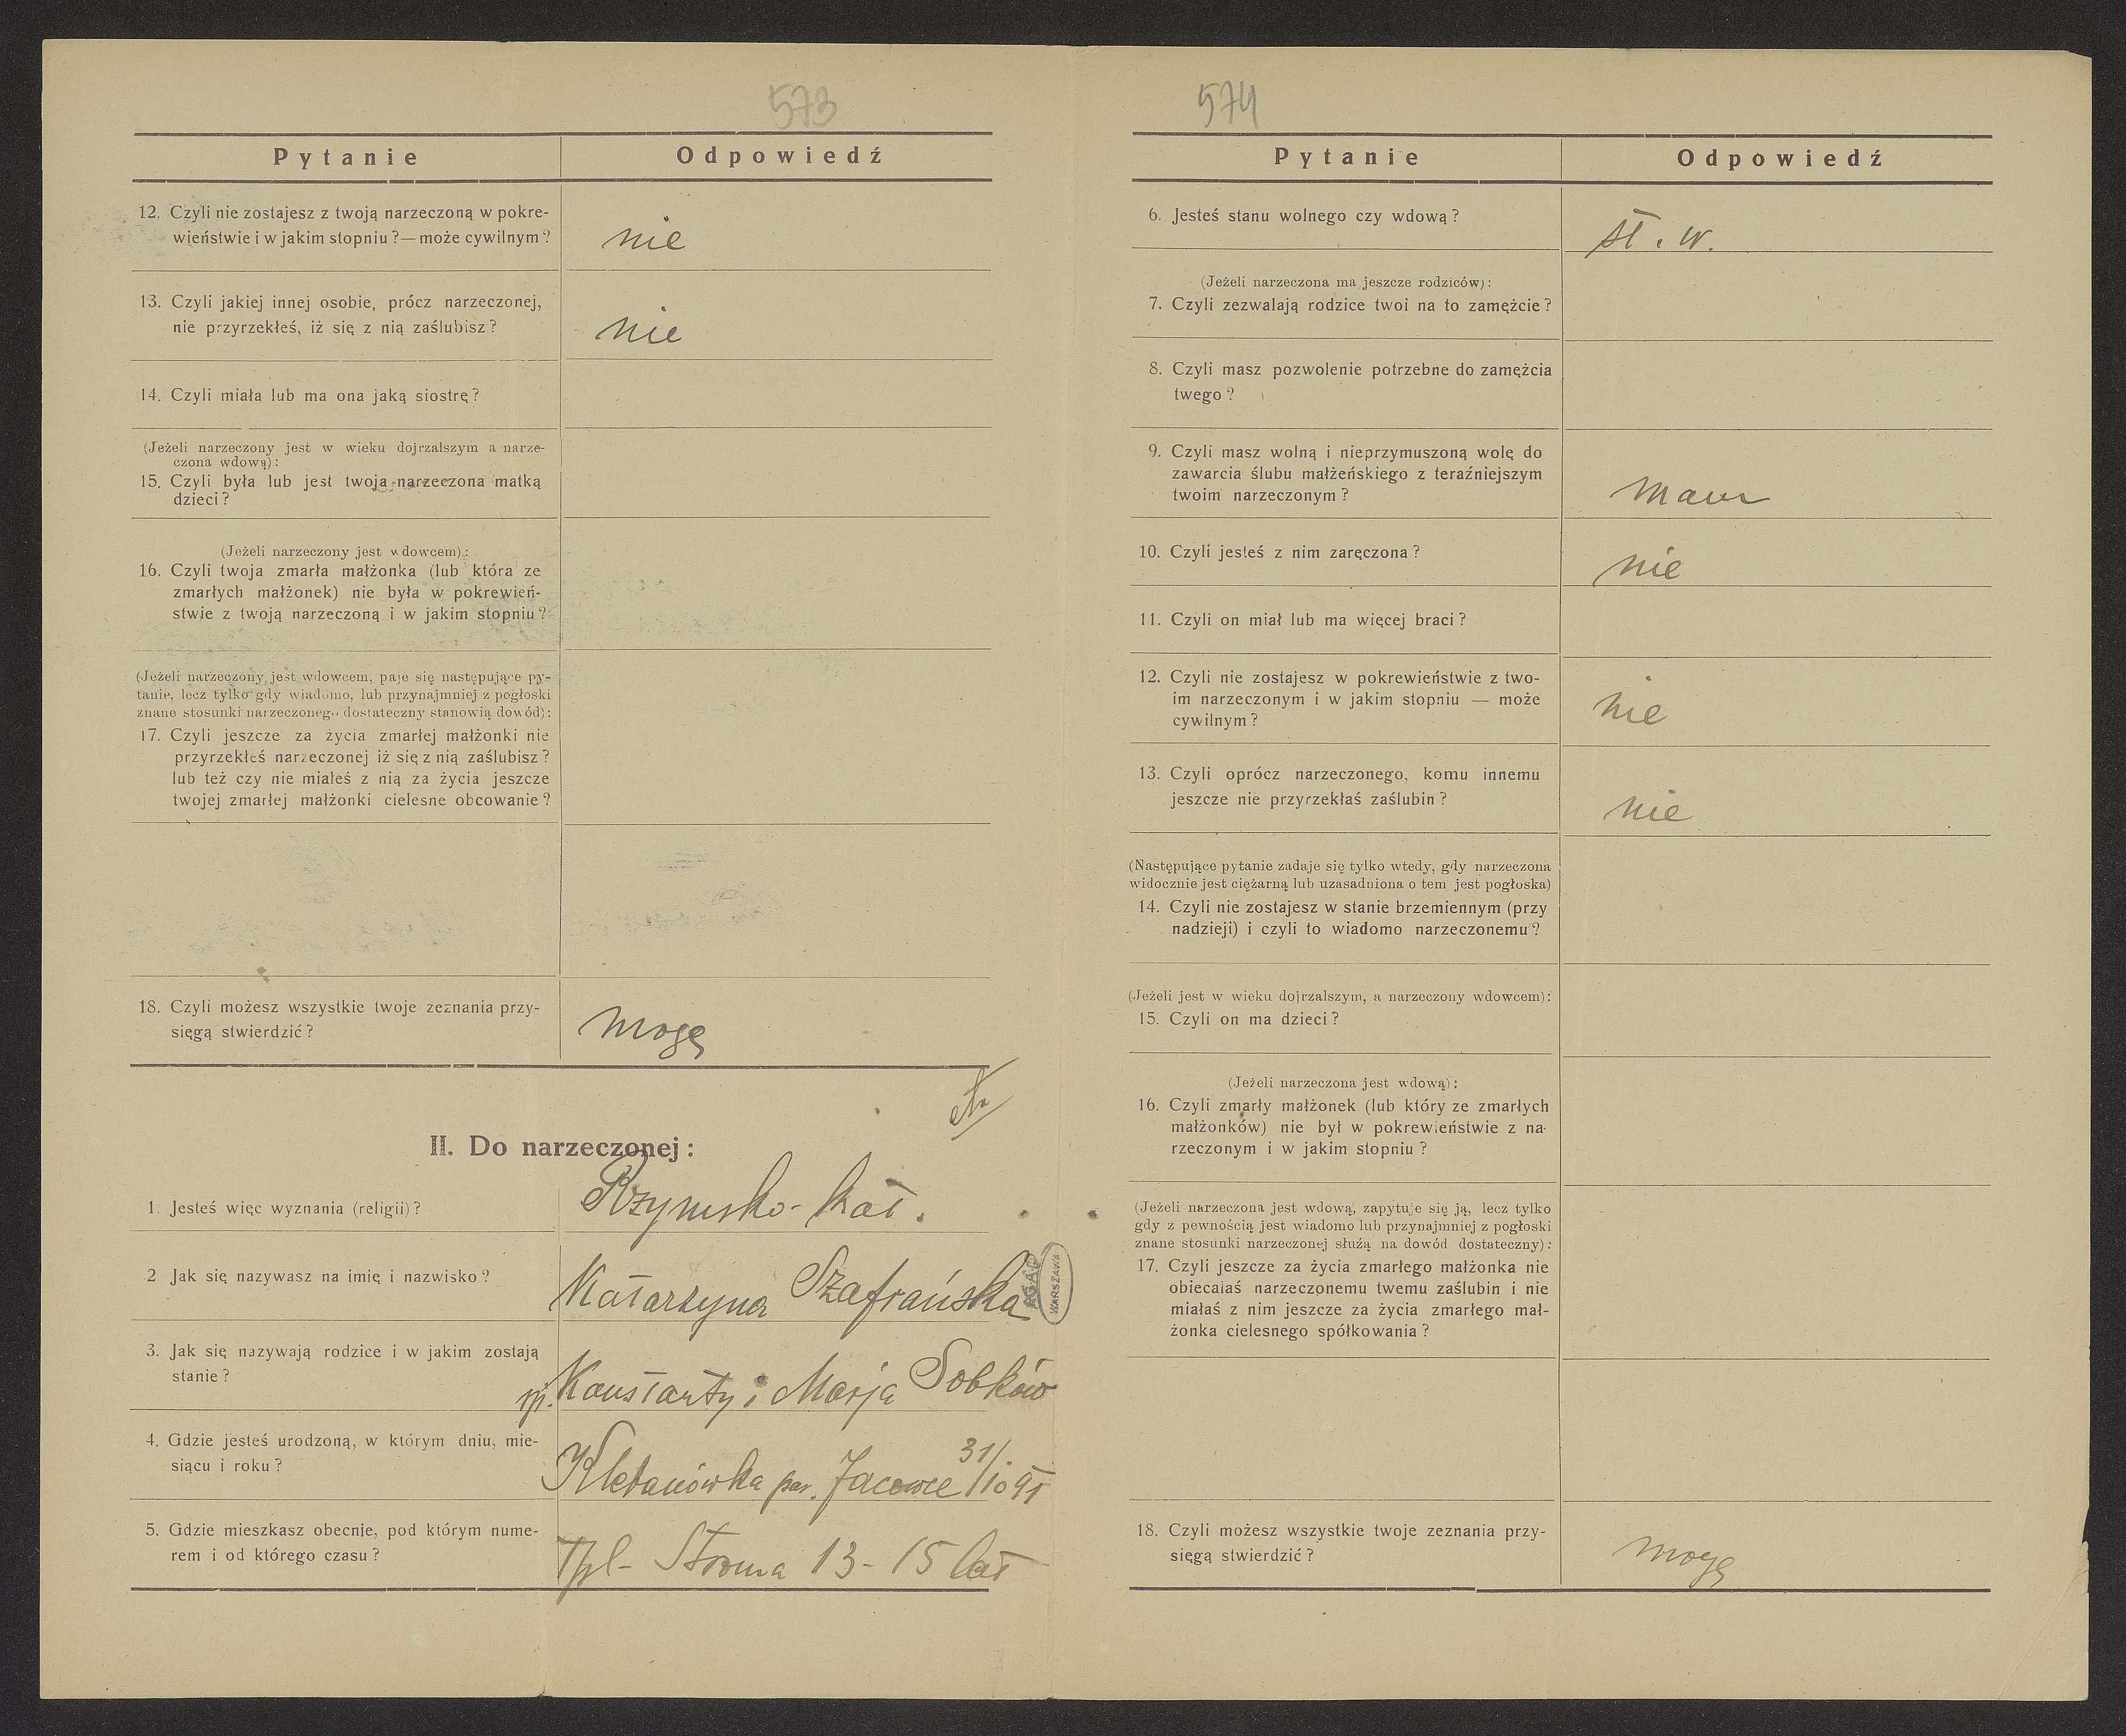 573
Pytanie Odpowiedź
12. Czyli nie zostajesz z twoją narzeczoną w pokre-
wieństwie i w jakim stopniu?—może cywilnym? nie
13. Czyli jakiej innej osobie, prócz narzeczonej,
nie przyrzekłeś, iż się z nią zaślubisz? nie
14. Czyli miała lub ma ona jaką siostrę?
(Jeżeli narzeczony jest w wieku dojrzalszym a narze-
czona wdową):
15. Czyli była lub jest twoja narzeczona matką
dzieci?
(Jeżeli narzeczony jest wdowcem):
16. Czyli twoja zmarła małżonka (lub która ze
zmarłych małżonek) nie była w pokrewień-
stwie z twoją narzeczoną i w jakim stopniu?
(Jeżeli narzeczony jest wdowcem, paje się następujące py-
tanie, lecz tylko gdy wiadomo, lub przynajmniej z pogłoski
znane stosunki narzeczonego dostateczny stanowią dowód):
17. Czyli jeszcze za życia zmarłej małżonki nie
przyrzekłeś narzeczonej iż się z nią zaślubisz?
lub też czy nie miałeś z nią za życia jeszcze
twojej zmarłej małżonki cielesne obcowanie?
18. Czyli możesz wszystkie twoje zeznania przy-
sięgą stwierdzić? mogę
II. Do narzeczonej:
1. Jesteś więc wyznania (religii)? Rzymsko-kat.
2 Jak się nazywasz na imię i nazwisko? Katarzyna Szafrańska
AGAD
WARSZAWA
3. Jak się nazywają rodzice i w jakim zostają
stanie? Konstanty i Marja Sobków
4. Gdzie jesteś urodzoną, w którym dniu, mie-
siącu i roku? Klebanówka par. Jacowce 31/10 91
5. Gdzie mieszkasz obecnie, pod którym nume-
rem i od którego czasu? Tpl- Stroma 13 - 15 lat
574
Pytanie Odpowiedź
6. Jesteś stanu wolnego czy wdową? st. w.
(Jeżeli narzeczona ma jeszcze rodziców):
7. Czyli zezwalają rodzice twoi na to zamężcie?
8. Czyli masz pozwolenie potrzebne do zamężcia
twego?
9. Czyli masz wolną i nieprzymuszoną wolę do
zawarcia ślubu małżeńskiego z teraźniejszym
twoim narzeczonym? mam
10. Czyli jesteś z nim zaręczona? nie
11. Czyli on miał lub ma więcej braci?
12. Czyli nie zostajesz w pokrewieństwie z two-
im narzeczonym i w jakim stopniu — może
cywilnym? nie
13. Czyli oprócz narzeczonego, komu innemu
jeszcze nie przyrzekłaś zaślubin? nie
(Następujące pytanie zadaje się tylko wtedy, gdy narzeczona
widocznie jest ciężarną lub uzasadniona o tem jest pogłoska)
14. Czyli nie zostajesz w stanie brzemiennym (przy
nadzieji) i czyli to wiadomo narzeczonemu?
(Jeżeli jest w wieku dojrzalszym, a narzeczony wdowcem):
15. Czyli on ma dzieci?
(Jeżeli narzeczona jest wdową):
16. Czyli zmarły małżonek (lub który ze zmarłych
małżonków) nie był w pokrewieństwie z na-
rzeczonym i w jakim stopniu?
(Jeżeli narzeczona jest wdową, zapytuje się ją, lecz tylko
gdy z pewnością jest wiadomo lub przynajmniej z pogłoski
znane stosunki narzeczonej służą na dowód dostateczny):
17. Czyli jeszcze za życia zmarłego małżonka nie
obiecałaś narzeczonemu twemu zaślubin i nie
miałaś z nim jeszcze za życia zmarłego mał-
żonka cielesnego spółkowania?
18. Czyli możesz wszystkie twoje zeznania przy-
sięgą stwierdzić? mogę